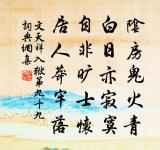 陰房鬼火青
白日亦寂寞
自非曠士懷
居人莽牢落
文天祥入獄第九十九
詞典網集